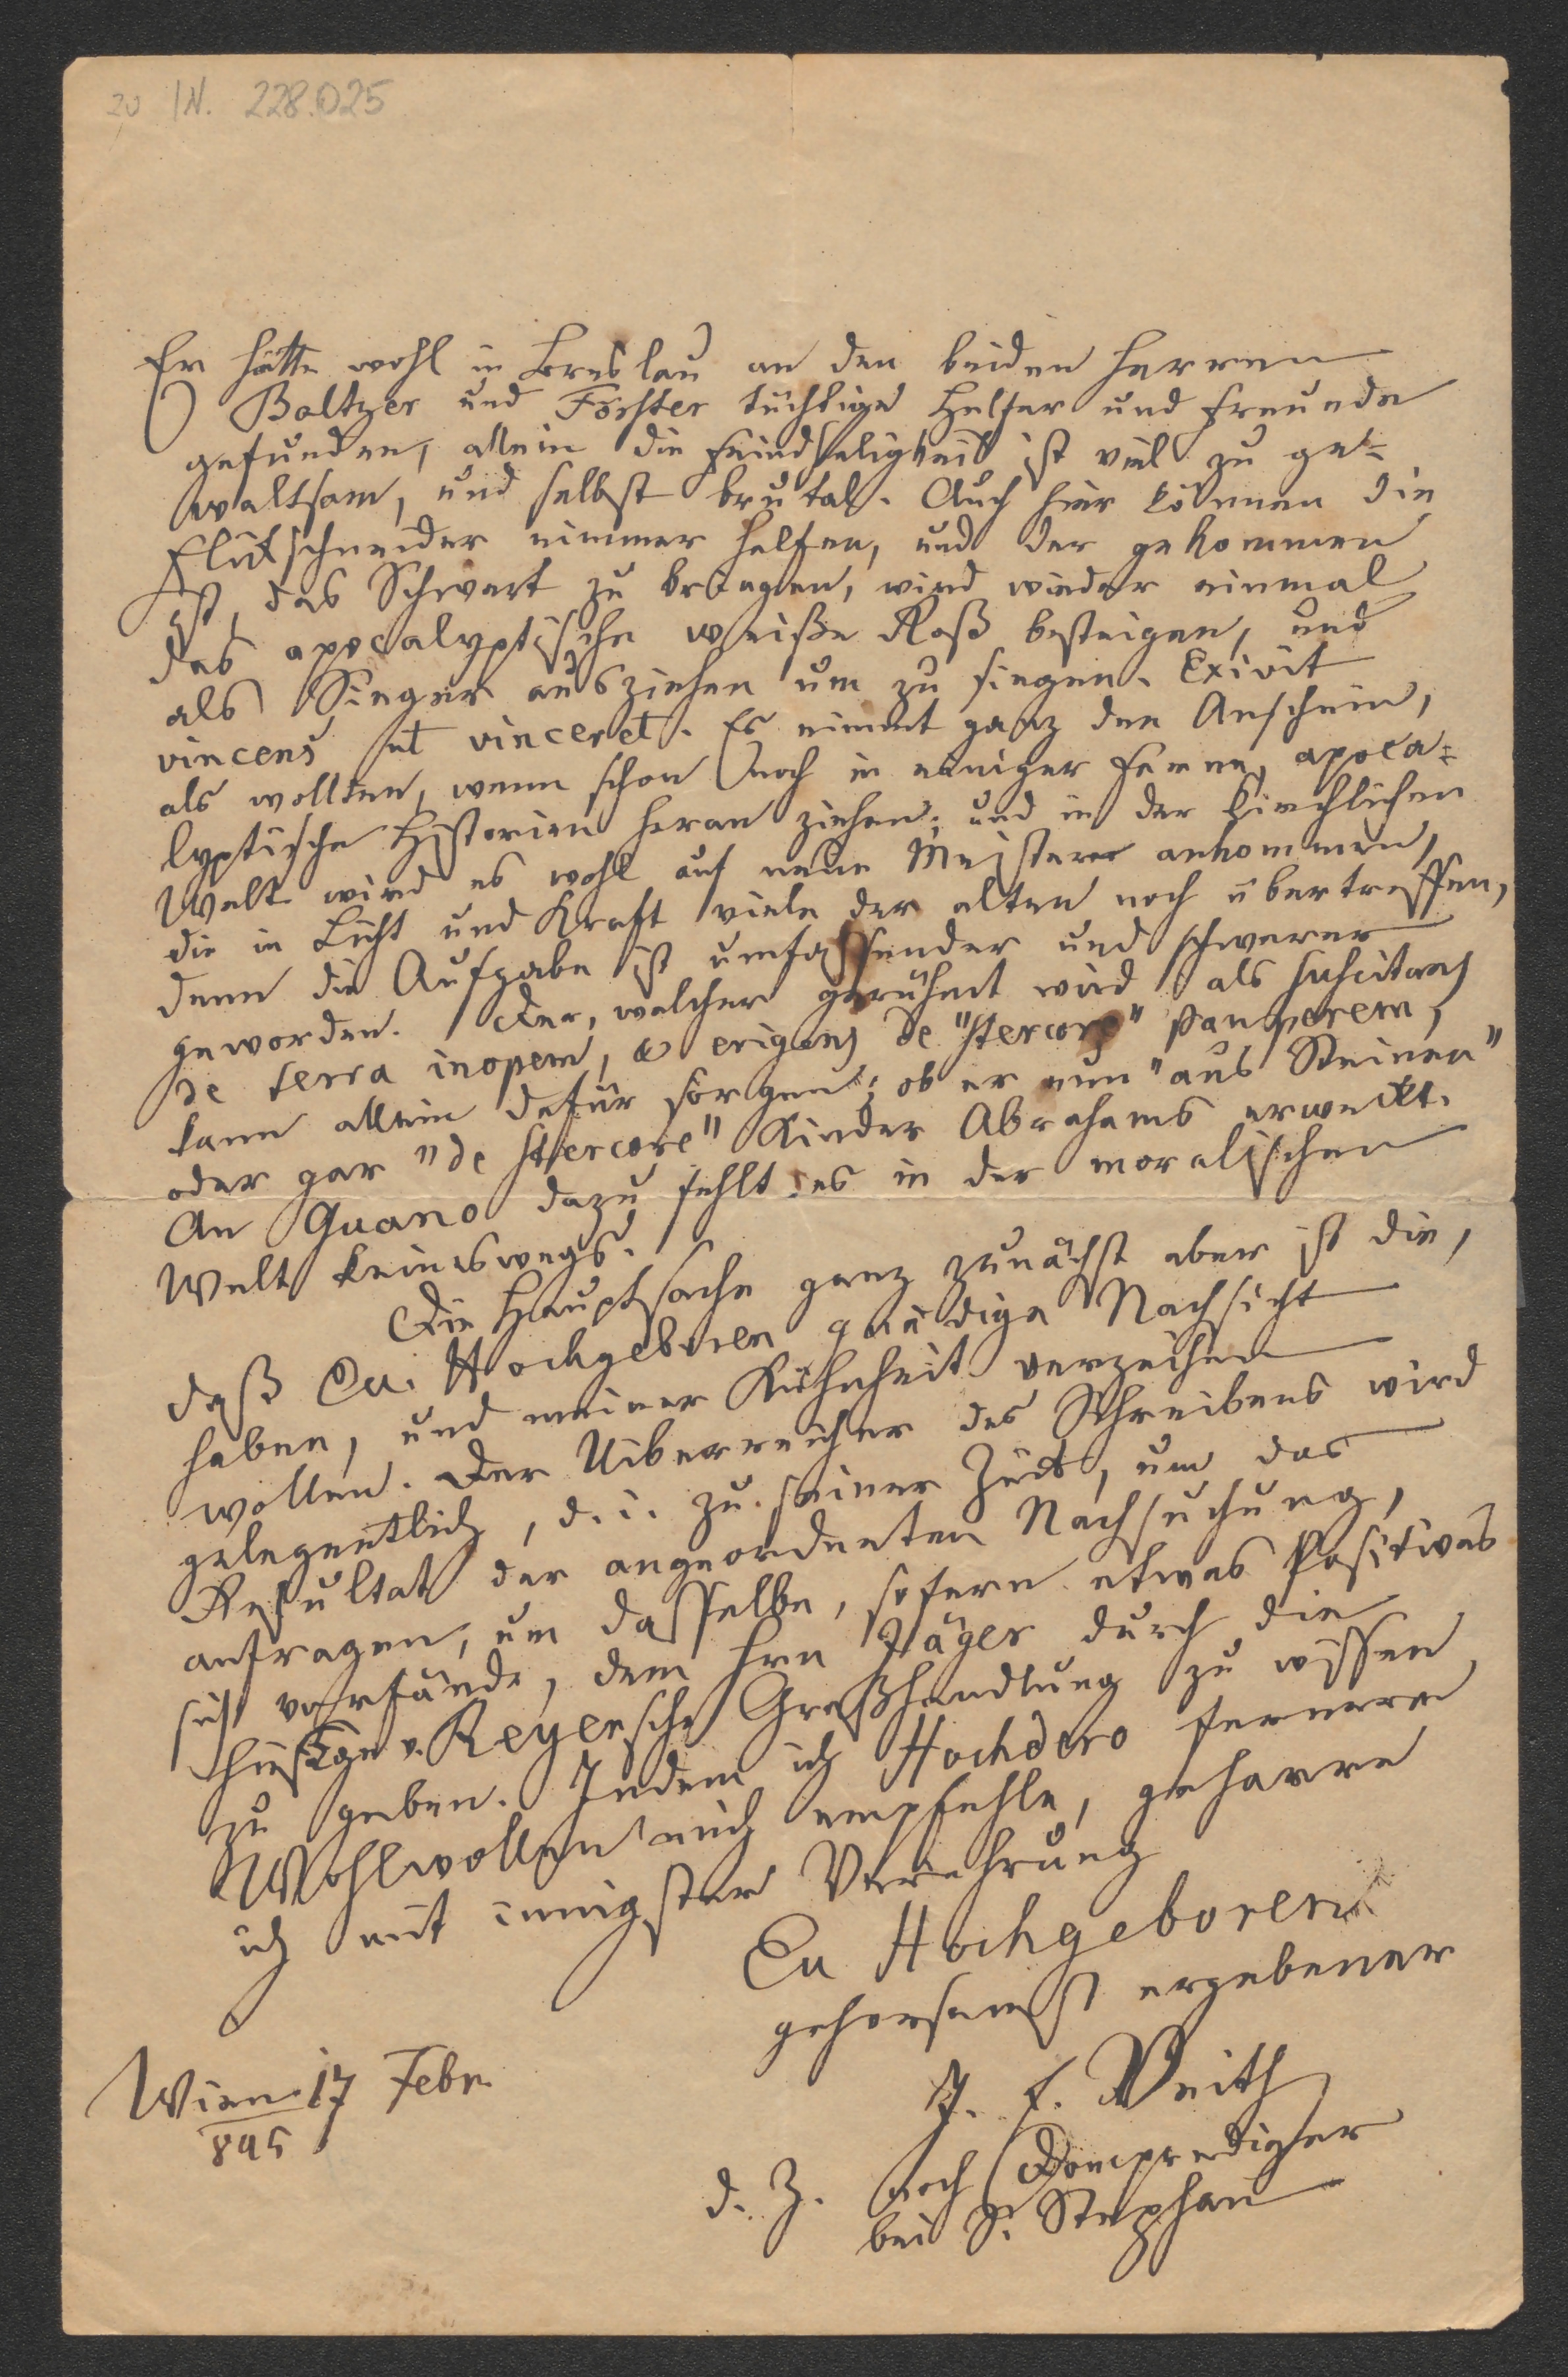 20 IN. 228.025
Er hätte wohl in Breslau an den beiden Herren
Baltzer und Förster tüchtige Helfer und Freunde
gefunden, allein die Feindseligkeit ist viel zu ge-
waltsam, und selbst brutal. Auch hier können die
schneider nimmer helfen, und der gekommen
ist, das Schwert zu bringen, wird wieder einmal
das apocalyptische weiße Roß besteigen, und
als Sieger ausziehen um zu siegen. Exivit
vincens ut vinceret. Es nimmt ganz den Anschein,
als wollten, wenn schon noch in einiger Ferne, apoca-
lyptische Historien heran ziehen; und in der kirchlichen
Welt wird es wohl auf neue Meister ankommen,
die in Licht und Kraft viele der alten noch übertreffen,
denn die Aufgabe ist umfassender und schwerer
geworden. Der, welcher gerühmt wird als suscitans
de terra inopem, & erigens de "stercore" pauperem,
kann allein dafür sorgen; ob er nun "aus Steinen"
oder gar "de stercore" Kinder Abrahams erweckt.
An Guano dazu fehlt es in der moralischen
Welt keineswegs.
Die Hauptsache ganz zunächst aber ist die,
daß Eu. Hochgeboren gnädige Nachsicht
haben, und meiner Kühnheit verzeihen
wollen. Der Uiberreicher des Schreibens wird
gelegentlich, d. i. zu seiner Zeit, um das
Resultat der angeordneten Nachsuchung,
anfragen, um dasselbe, sofern etwas Positives
sich vorfände, dem Hrn Jäger durch die
hiesige v. Reyersche Großhandlung zu wissen
zu geben. Indem ich Hochdero fernerem
Wohlwollen mich empfehle, geharre
ich mit innigster Verehrung
Eu Hochgeboren
gehorsamst ergebener
J. E. Veith
d. Z. noch Domprediger
bei S. Stephan
Wien 17 Febr.
845